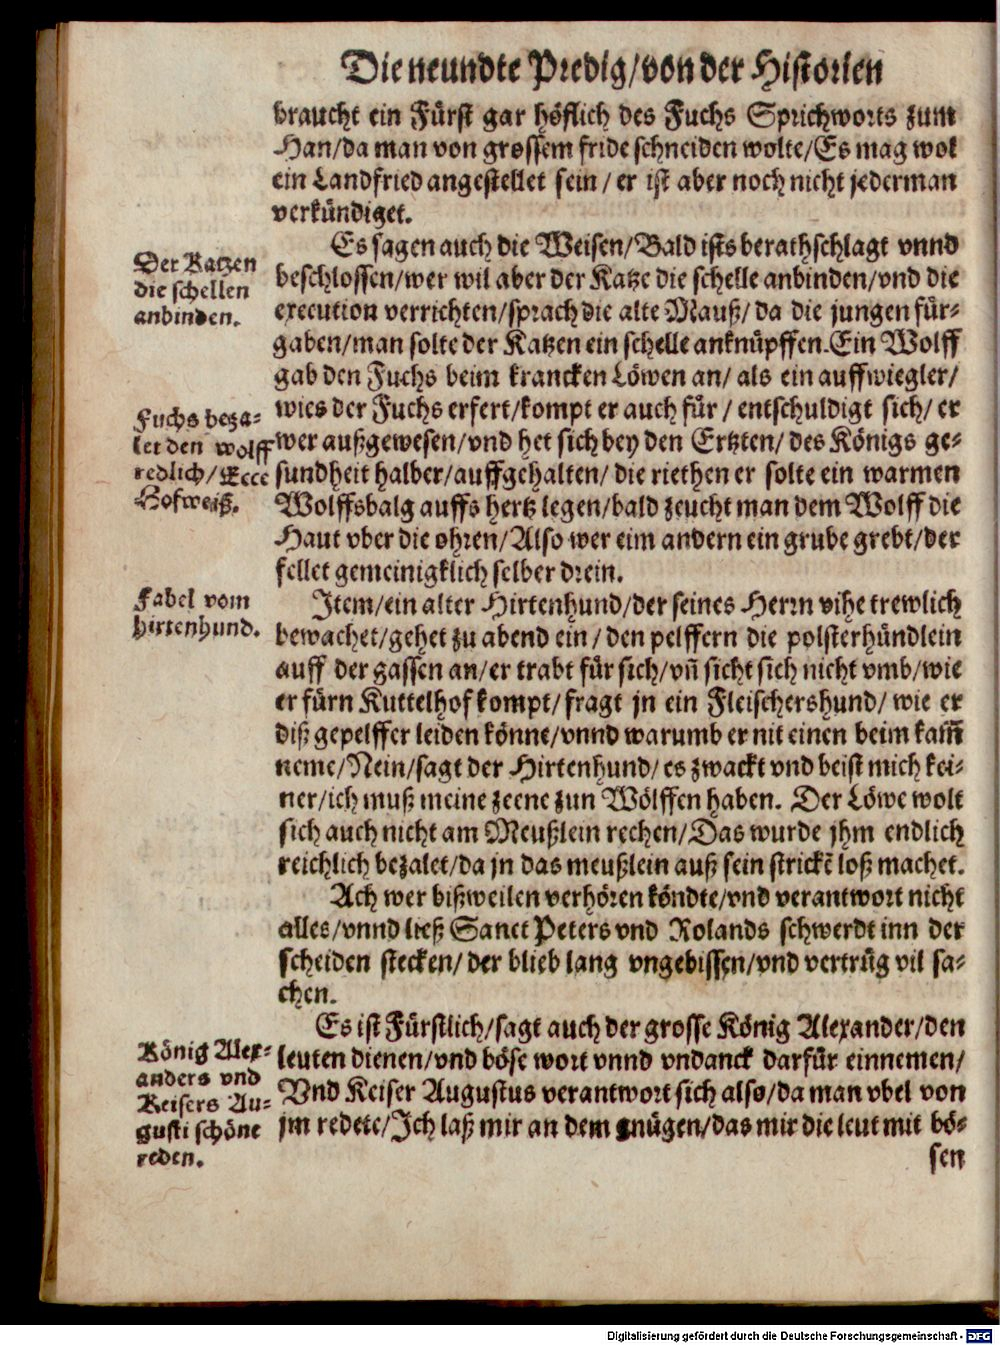 Die neundte Predig/von der Historien
braucht ein Fürst gar höflich des Fuchs Sprichworts zum
Han/da man von grossem fride schneiden wolte/Es mag wol
ein Landfried angestellet sein/er ist aber noch nicht jederman
verkündiget.
Es sagen auch die Weisen/Bald ists berathschlagt vnnd
Der Katzen
die schellen
anbinden.
beschlossen/wer wil aber der Katze die schelle anbinden/vnd die
execution verrichten/sprach die alte Mauß/da die jungen für-
gaben/man solte der Katzen ein schelle anknüpffen. Ein Wolff
gab den Fuchs beim krancken Löwen an/als ein auffwiegler/
Fuchs beza-
let den wolff
redlich/Ecce
Hofweiß.
wies der Fuchs erfert/kompt er auch für/entschuldigt sich/er
wer außgewesen/vnd het sich bey den Ertzten/des Königs ge-
sundheit halber/auffgehalten/die riethen er solte ein warmen
Wolffsbalg auffs hertz legen/bald zeucht man dem Wolff die
Haut vber die ohren/Also wer eim andern ein grube grebt/der
fellet gemeinigklich selber drein.
Fabel vom
hirtenhund.
Item/ein alter Hirtenhund/der seines Herrn vihe trewlich
bewachet/gehet zu abend ein/den pelffern die polsterhündlein
auff der gassen an/er trabt für sich/vñ sicht sich nicht vmb/wie
er fürn Kuttelhof kompt/fragt jn ein Fleischershund/wie er
diß gepelffer leiden könne/vnnd warumb er nit einen beim kam̃
neme/Nein/sagt der Hirtenhund/es zwackt vnd beist mich kei-
ner/ich muß meine zeene zun Wölffen haben. Der Löwe wolt
sich auch nicht am Meußlein rechen/Das wurde jhm endlich
reichlich bezalet/da jn das meußlein auß sein strickẽ loß machet.
Ach wer bißweilen verhören köndte/vnd verantwort nicht
alles/vnnd ließ Sanct Peters vnd Rolands schwerdt inn der
scheiden stecken/der blieb lang vngebissen/vnd vertrüg vil sa-
chen.
Es ist Fürstlich/sagt auch der grosse König Alexander/den
König Alex-
anders vnd
Keisers Au-
gusti schöne
reden.
leuten dienen/vnd böse wort vnnd vndanck darfür einnemen/
Vnd Keiser Augustus verantwort sich also/da man vbel von
jm redete/Ich laß mir an dem gnügen/das mir die leut mit bö-
sen
Digitalisierung gefördert durch die Deutsche Forschungsgemeinschaft - DFG